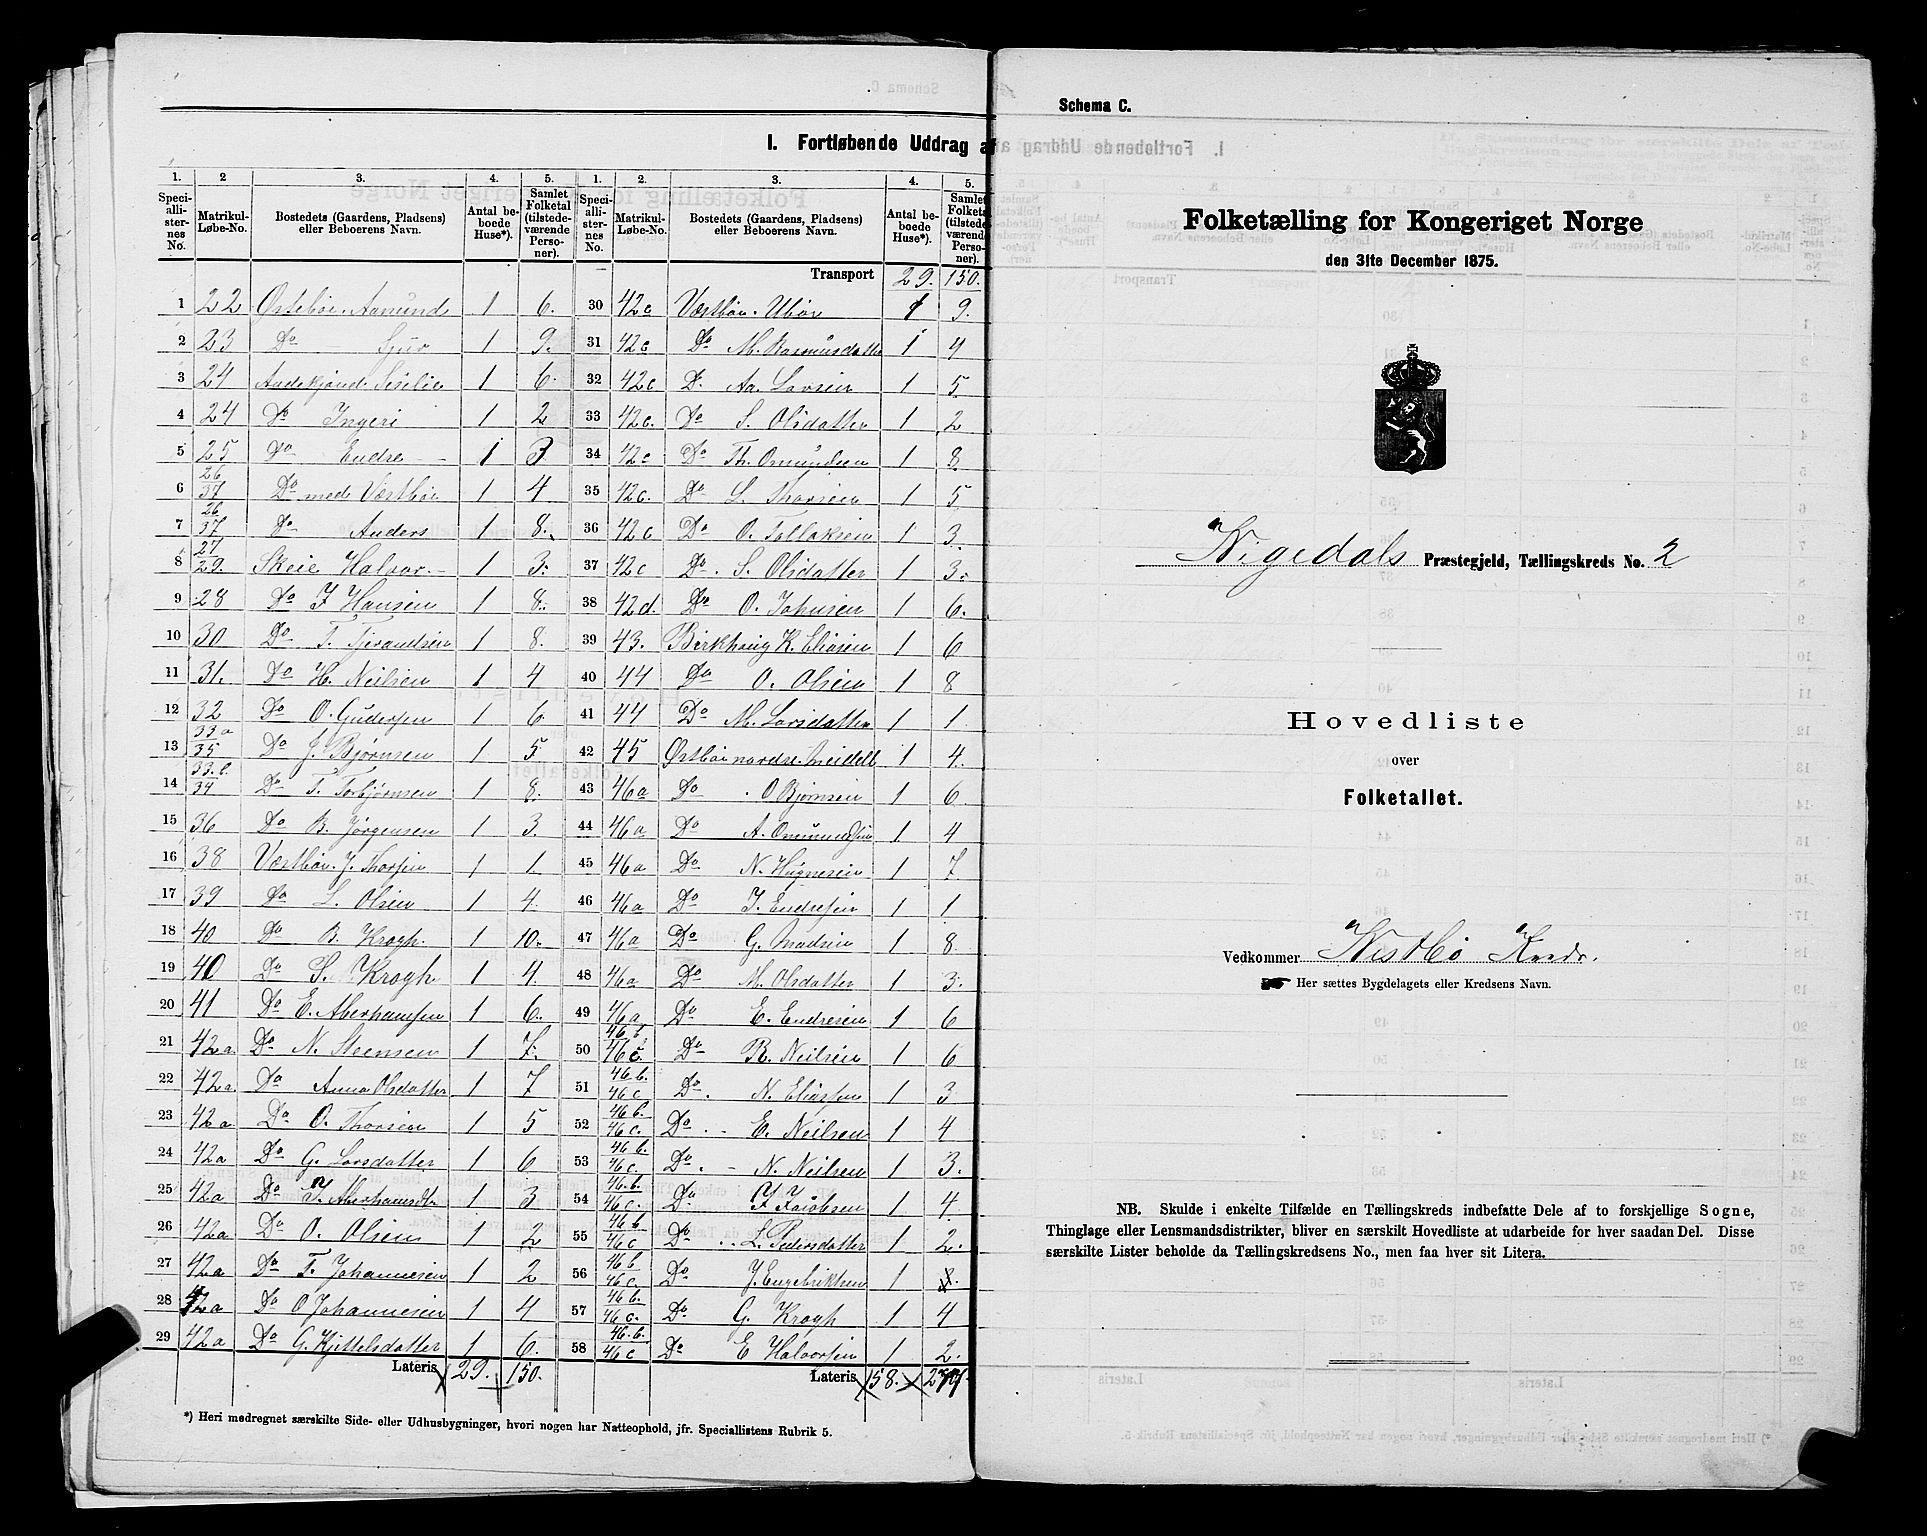 I. Fortløbende Uddrag a
1. 2 3. 4. 5. 1. 2. 3. 4. 5.
Speciallisternes No. Matrikul-Løbe-No. Bostedets (Gaardens, Pladsens) eller Beboerens Navn. Antal beboede Huse*). Samlet Folketal (tilstedeværende Personer). Speciallisternes No. Matrikul-Løbe-No. Bostedets (Gaardens, Pladsens) eller Beboerens Navn. Antal beboede Huse*). Samlet Folketal (tilstedeværende Personer).
Transport 29. 150.
1 22 Østebøe Aamund 1 6.
2 23 Do Sjur 1 9.
3 24 Siselie 1 6.
4 24 Do Ingeri 1 2
5 25 Do Endre 1 3
6 26/37 Do mede Væstbøe 1 4
7 26/37 Do Anders 1 8.
8 27/29. Skeie Halvor. 1 3.
9 28 Do F Hansen 1 8.
10 30 Do T. Tjerandsen 1 8.
11 31. Do H. Neilsen 1 4
12 32 Do O. Gudersen 1 6.
13 33a/35 Do J. Bjørnsen 1 5
14 33.b./34 Do T. Torbjørnsen 1 8.
15 36 Do B. Jørgensen 1 3.
16 38 Væstbøe J. Thorsen 1 1.
17 39 Do L. Olsen 1 4.
18 40 Do B. Krogh. 1 10.
19 40 Do S. Krogh 1 4.
20 41 Do E. Aberhamsen 1 6.
21 42a Do N. Steensen 1 7.
22 42a Do Anna Olsdatter 1 7
23 42a Do O. Thorsen 1 5
24 42a Do G. Larsdatter 1 6
25 42a Do T. Aberhamsdt. 1 3
26 42a Do O. Olsen 1 2
27 42a Do T. Johannesen 1 2
28 42a Do O Johannesen 1 4
29 42a Do G. Kjittelsdatter 1 6.
Lateris 29. 150.
30 42c Væstbøe. Ubøe 1 9.
31 42c Do M. Rasmusdatter 1 4
32 42c D. Aa. Larsen 1 5
33 42c. Do S. Olsdatter 1 2
34 42c Do Th. Omundsen 1 8
35 42c. Do L. Thorsen 1 5
36 42c Do O. Tollaksen 1 3.
37 42c Do. S. Olsdatter 1 3.
38 42d. Do O. Johnsen 1 6.
39 43. Birkhaug K. Eliasen 1 6
40 44 Do O. Olsen 1 8
41 44 Do M. Larsdatter 1 1
42 45 Østbøe nordre. Meidell 1 4.
43 46a Do O Bjørnsen 1 6
44 46a Do A. Omundsen 1 4
45 46a Do N. Hugnesen 1 7
46 46a Do T. Endresen 1 1
47 46a Do G. Madsen 1 8
48 46a Do M. Olsdatter 1 3.
49 46a Do E. Endresen 1 6
50 46b/46c Do R. Neilsen 1 6
51 46b./46c Do. N. Eliassen 1 3
52 46b./46c. Do E. Neilsen 1 4
53 46b./46c. Do. N. Neilsen 1 3.
54 46.b./46c. Do F Jakobsen 1 4.
55 46b/46c Do L. Pedersdatter 1 2.
56 46b/46c. Do J. Engebriktsen 1
57 46b./46c. Do G. Krogh 1 4
58 46.b./46c Do E Halvorsen 1 2.
Lateris 58.
*) Heri medregnet særskilte Side- eller Udhusbygninger, hvori nogen har Natteophold, jfr. Speciallistens Rubrik 5.
Schema C.
Folketælling for Kongeriget Norge
den 31te December 1875.
Nigedals Præstegjeld, Tællingskreds No. 2
Hovedliste
over
Folketallet.
Vedkommer Vestbø Kreds.
Her sættes Bygdelagets eller Kredsens Navn.
NB. Skulde i enkelte Tilfælde en Tællingskreds indbefatte Dele af to forskjellige Sogne,
Thinglage eller Lensmandsdistrikter, bliver en særskilt Hovedliste at udarbeide for hver saadan Del. Disse
særskilte Lister beholde da Tællingskredsens No., men faa hver sit Litera.